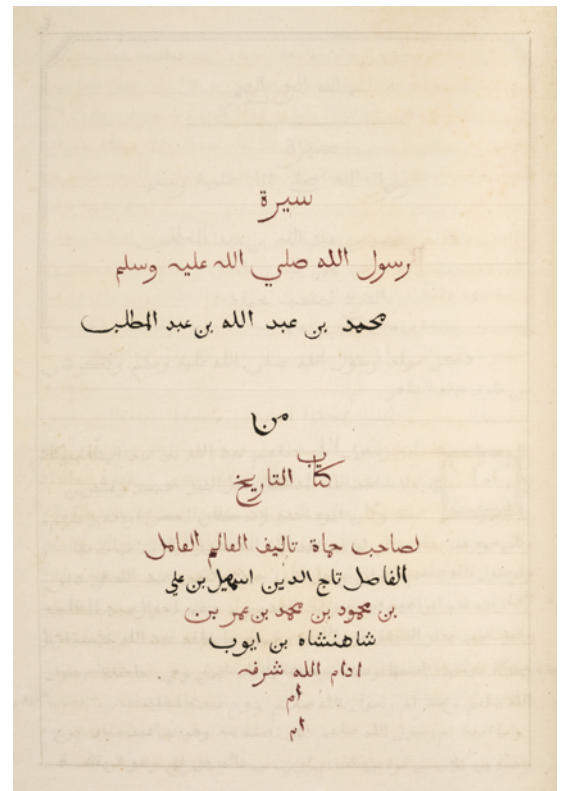 سيرة
رسول الله صلي الله عليه وسلم
محمد بن عبد الله بن عبد المطلب
من
كتاب
التاريخ
لصاحب حماة تاليف العالم العامل
الفاضل تاج الدين اسمعيل بن علي
بن محمود بن محمد بن عمر بن
شاهنشاه بن ايوب
ادام الله شرفه
ام
ام